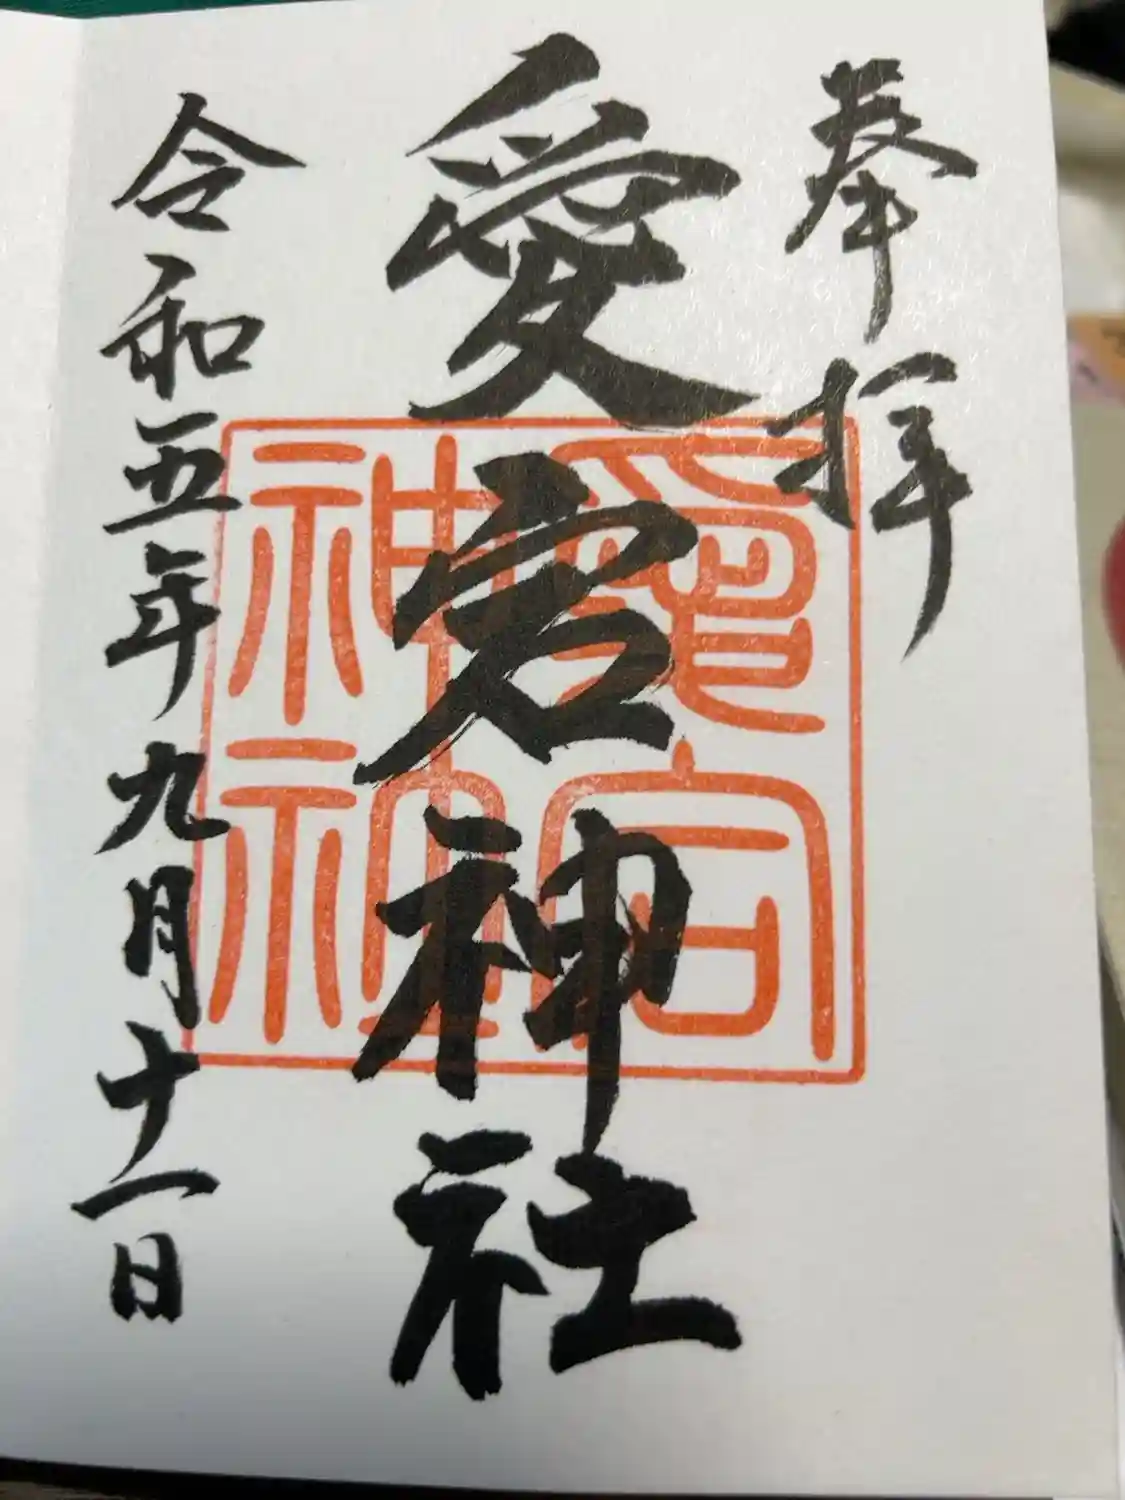 奉拝
愛宕神社
愛宕
神社
令和五年九月十一日